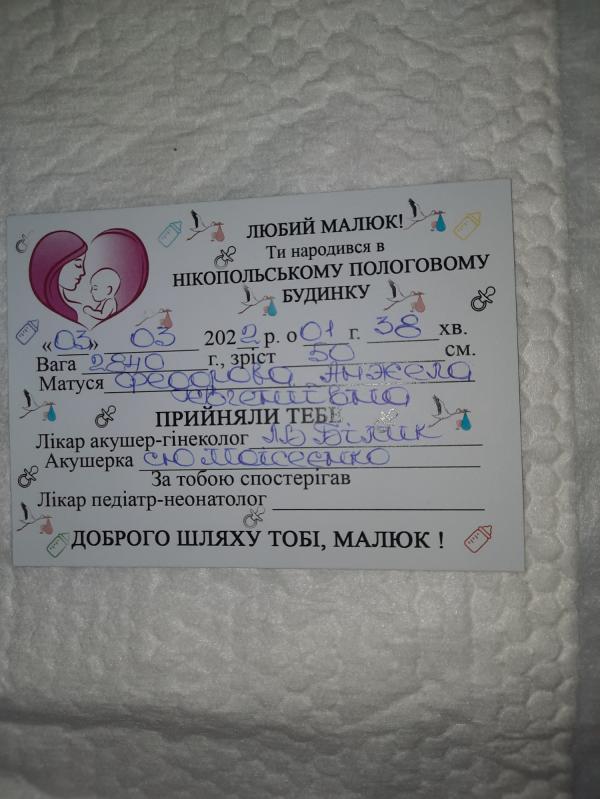 ЛЮБИЙ МАЛЮК!
Ти народився в
НІКОПОЛЬСЬКОМУ ПОЛОГОВОМУ
БУДИНКУ
«03» 03 2022 р. о 01 г. 38 хв.
Вага 2840 г., зріст 50 см.
Матуся Федорова Анжела
Євгеніївна
ПРИЙНЯЛИ ТЕБЕ
Лікар акушер-гінеколог Білик
Акушерка Мойсеєнко
За тобою спостерігав
Лікар педіатр-неонатолог
ДОБРОГО ШЛЯХУ ТОБІ, МАЛЮК !